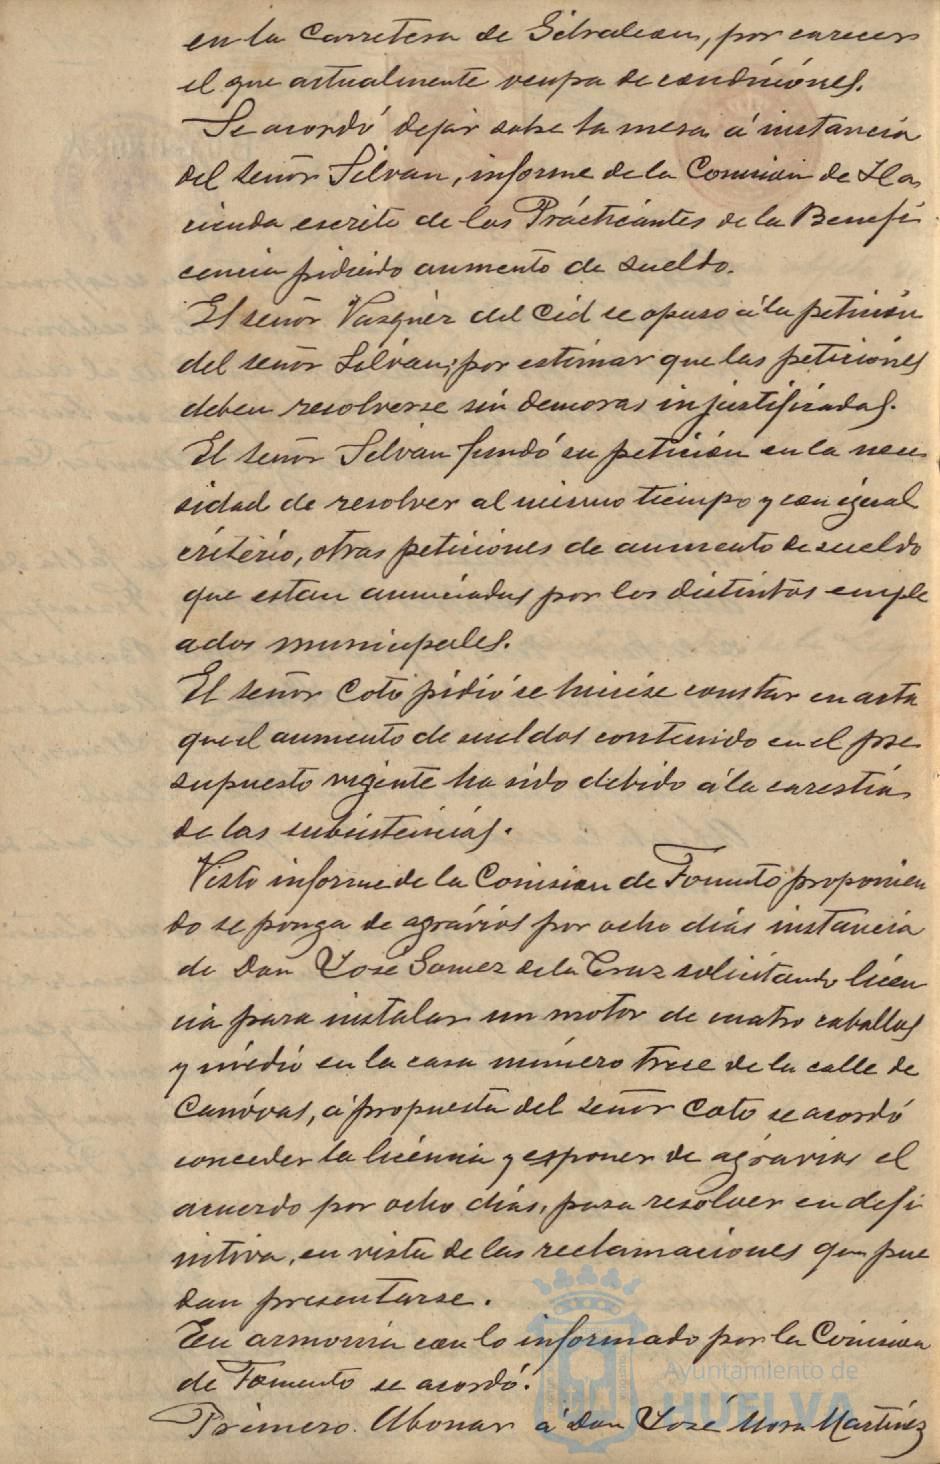 en la Carretera de Gibraleon, por carecer
el que actualmente ocupa de condiciónes.
Se acordó dejar sobre la mesa á instancia
del señor Silvan, informe de la Comision de Ha
cienda escrito de los Practicantes de la Benefi
cencia pidiendo aumento de sueldo.
El señor Vazquez del Cid se opuso á la petición
del señor Silván, por estimar que las peticiónes
deben resolverse sin demoras injustificadas.
El señor Silván fundó su petición en la nece
sidad de resolver al mismo tiempo y con igual
criterio, otras peticiones de aumento de sueldo
que estan anunciadas por los distintos emple
ados municipales.
El señor Coto pidió se hiciese constar en acta
que el aumento de sueldos contenido en el pre
supuesto vigente ha sido debido á la carestia
de las subsistencias.
Visto informe de la Comision de Fomento proponien
do se ponga de agravios por ocho dias instancia
de Don José Gomez de la Cruz solicitando licen
cia para instalar un motor de cuatro caballos
y médio en la casa número trece de la calle de
Canóvas, á propuesta del señor Coto se acordó
conceder la licencia y esponer de agravios el
acuerdo por ocho dias, para resolver en defi
nitiva, en vista de las reclamaciones que pue
dan presentarse.
En armonia con lo informado por la Comision
de Fomento se acordó.
Ayuntamiento de
HUELVA
Primero. Abonar á Don José Mora Martínez